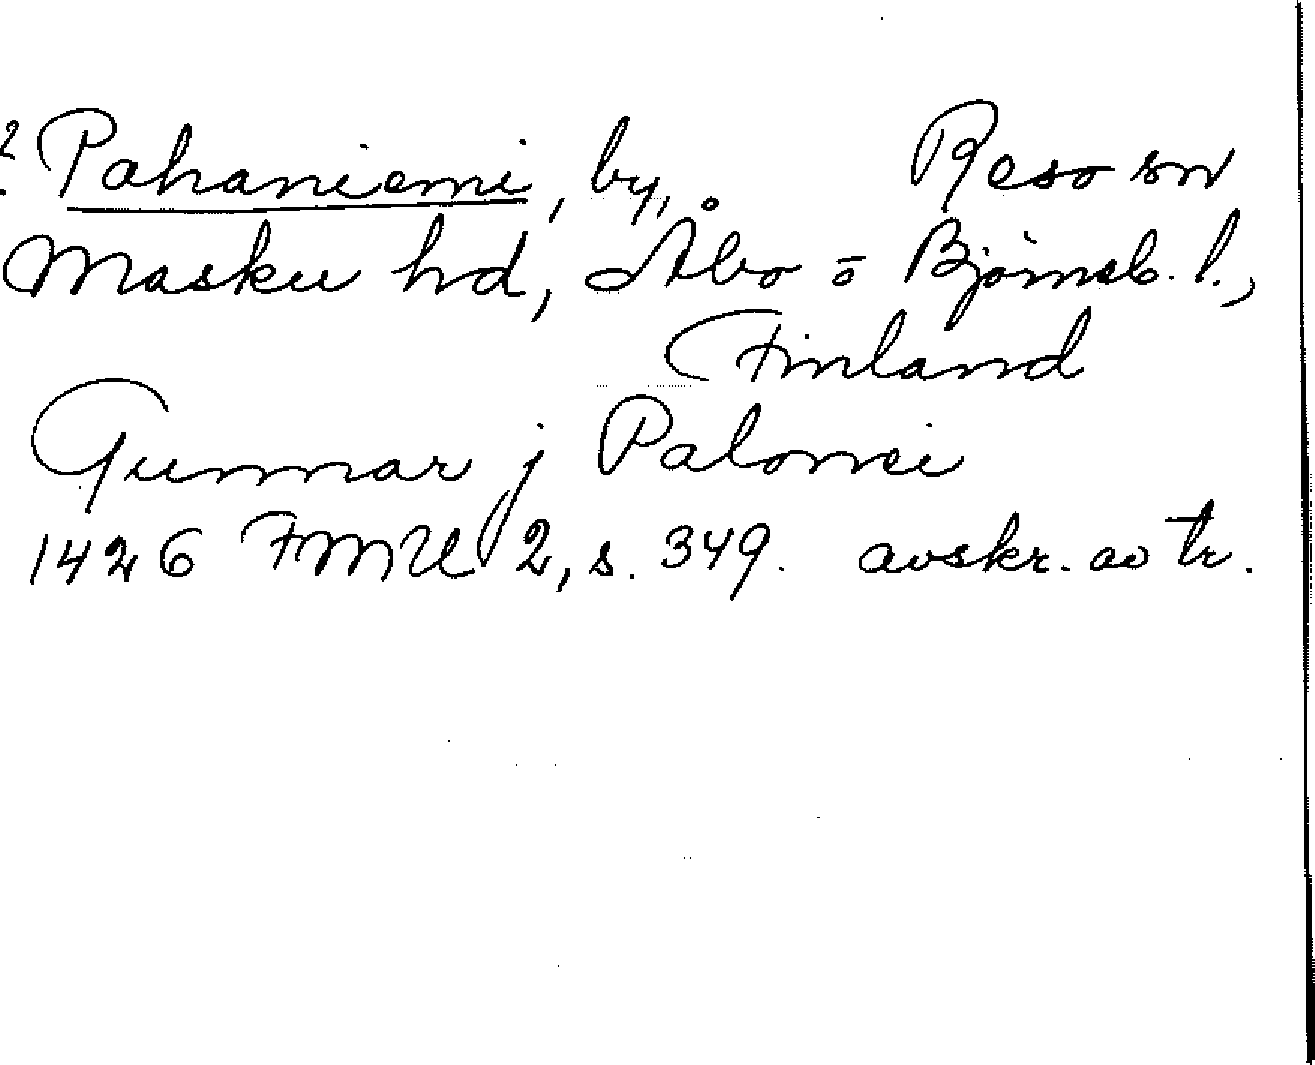 ? Pahaniemi, by, Reso sn
Masku hd, Åbo o Björneb. l.,
Finland
Gunnar j Palonei
1426 FMU 2, s. 349. avskr. av tr.